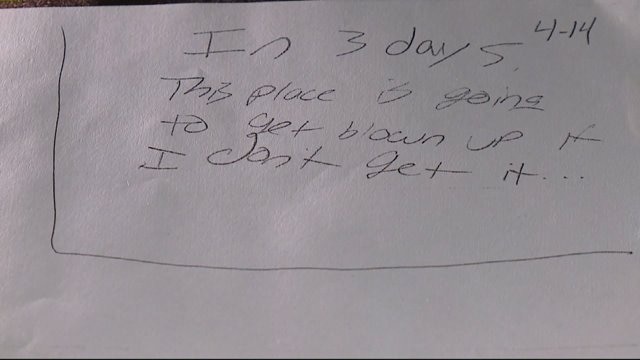 In 3 days 4-14
This place is going
to get blown up if
I don't get it...